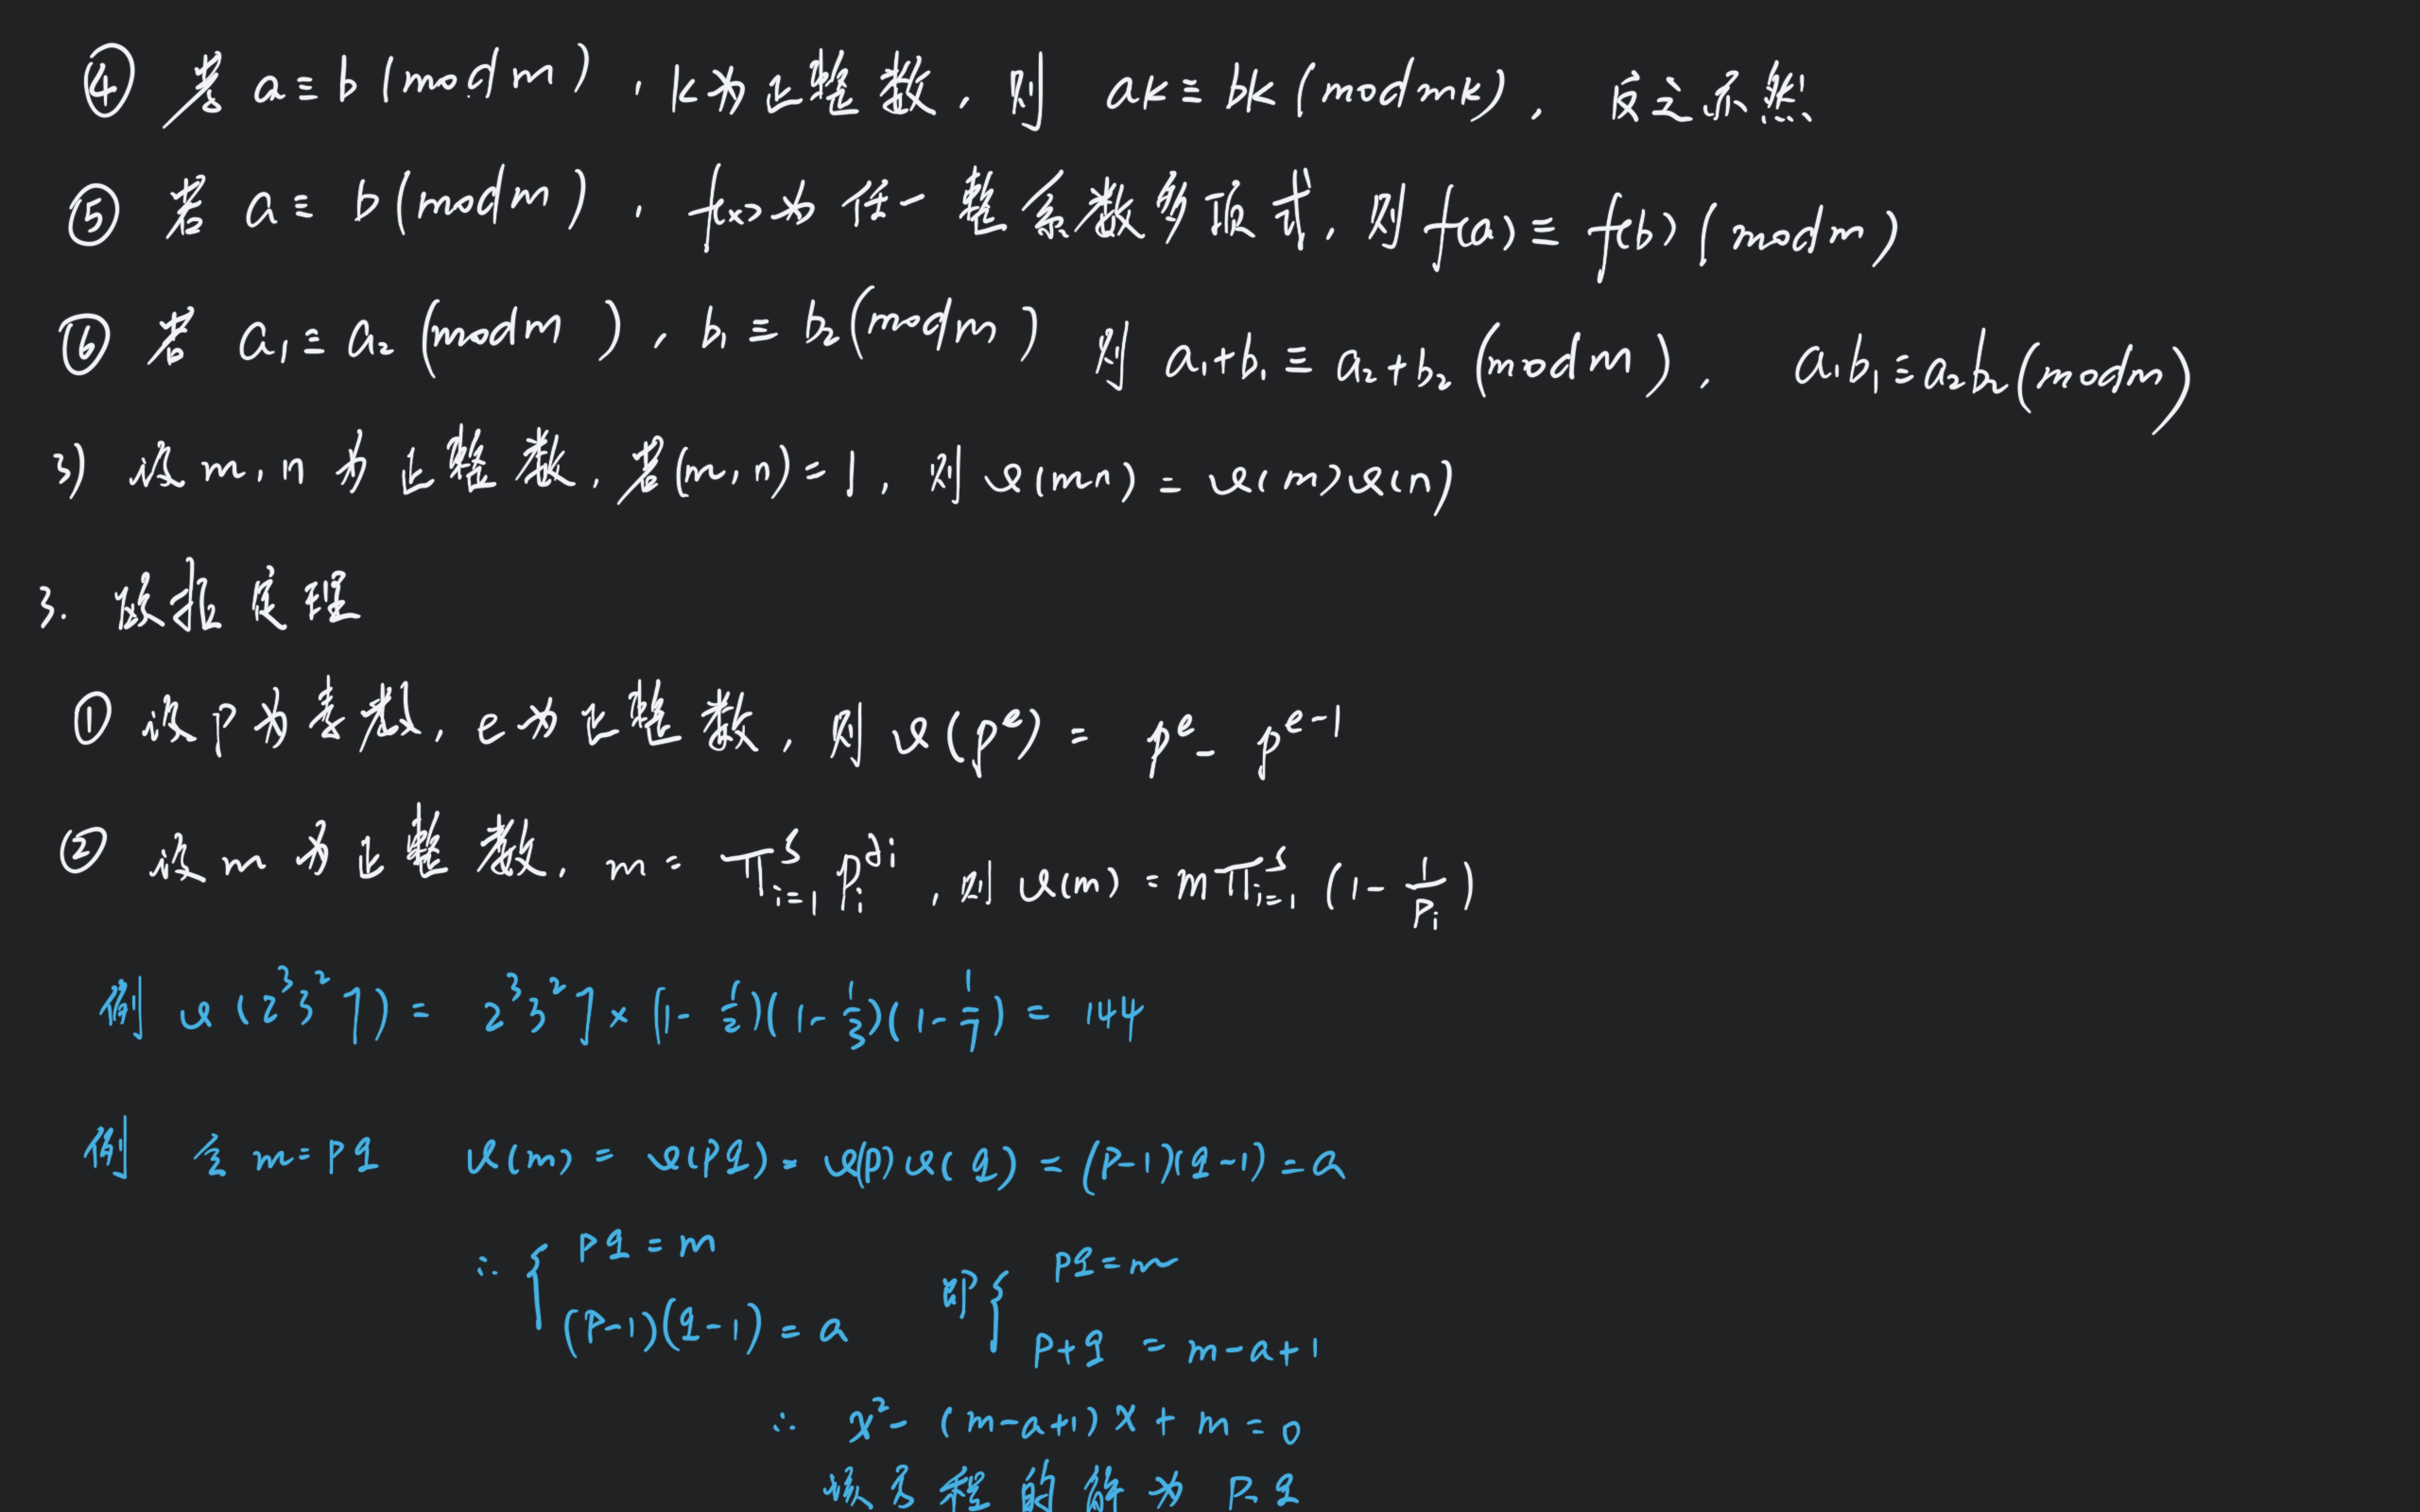 ④ 若 a≡b(mod m), k为正整数, 则 ak≡bk(mod mk), 反之亦然
⑤ 若 a≡b(mod m), f(x)为任一整系数多项式, 则 f(a)≡f(b)(mod m)
⑥ 若 a₁≡a₂(mod m), b₁≡b₂(mod m) 则 a₁+b₁≡a₂+b₂(mod m), a₁b₁≡a₂b₂(mod m)
3) 设 m,n 为正整数, 若(m,n)=1, 则 φ(mn)=φ(m)φ(n)
3. 欧拉定理
① 设 p 为素数, e为正整数, 则 φ(p^e) = p^e - p^(e-1)
② 设 m 为正整数, m = ∏_(i=1)^s p_i^(a_i), 则 φ(m) = m∏_(i=1)^s (1 - 1/p_i)
例 φ(2³3²7) = 2³3²7×(1-1/2)(1-1/3)(1-1/7) = 144
例 令 m=pq φ(m) = φ(pq) = φ(p)φ(q) = (p-1)(q-1) = a
∴ { pq=m 即 { pq=m
(p-1)(q-1)=a p+q = m-a+1
∴ x² - (m-a+1)x + m = 0
该方程的解为 p,q